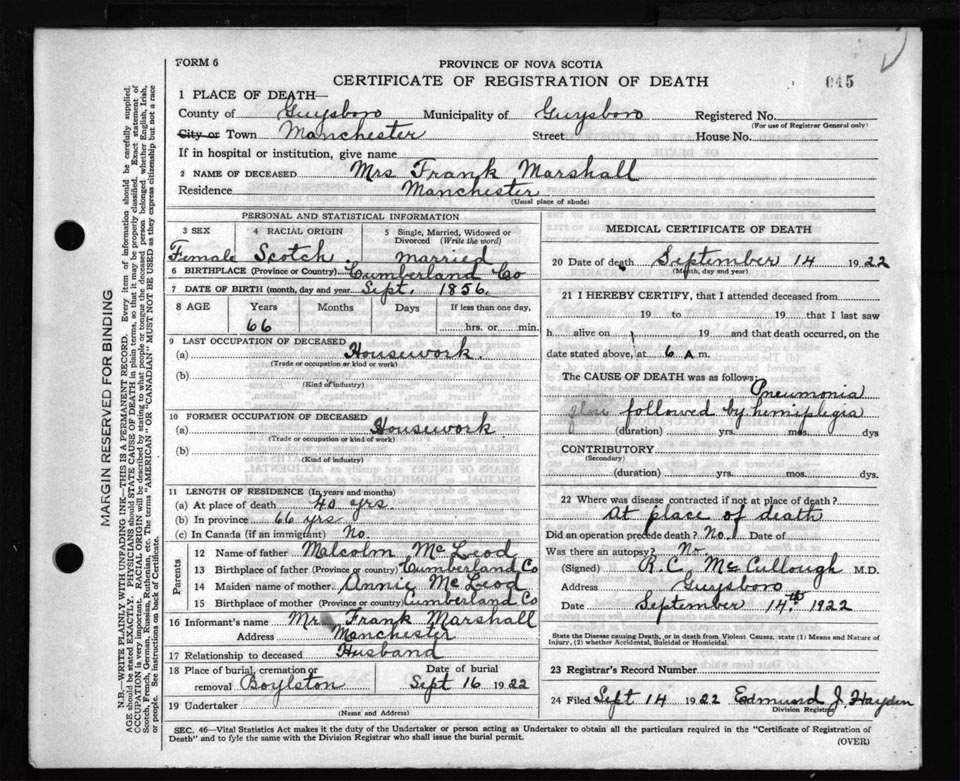 FORM 6
PROVINCE OF NOVA SCOTIA
CERTIFICATE OF REGISTRATION OF DEATH
045
1 PLACE OF DEATH—
County of Guysboro Municipality of Guysboro Registered No.
(For use of Registrar General only)
City or Town Manchester Street House No.
If in hospital or institution, give name
2 NAME OF DECEASED Mrs Frank Marshall
Residence Manchester
(Usual place of abode)
PERSONAL AND STATISTICAL INFORMATION
3 SEX 4 RACIAL ORIGIN 5 Single, Married, Widowed or Divorced (Write the word)
Female Scotch married
6 BIRTHPLACE (Province or Country) Cumberland Co
7 DATE OF BIRTH (month, day and year) Sept. 1856.
8 AGE Years Months Days If less than one day,
66 hrs. or min.
9 LAST OCCUPATION OF DECEASED
(a) Housework.
(Trade or occupation or kind of work)
(b)
(Kind of industry)
10 FORMER OCCUPATION OF DECEASED
(a) Housework
(Trade or occupation or kind of work)
(b)
(Kind of industry)
11 LENGTH OF RESIDENCE (In years and months)
(a) At place of death 40 yrs.
(b) In province 66 yrs
(c) In Canada (if an immigrant) No.
Parents
12 Name of father Malcolm McLeod
13 Birthplace of father (Province or country) Cumberland Co
14 Maiden name of mother Annie McLeod
15 Birthplace of mother (Province or country) Cumberland Co
16 Informant's name Mr Frank Marshall
Address Manchester
17 Relationship to deceased Husband
18 Place of burial, cremation or removal Boylston Date of burial Sept 16 1922
19 Undertaker
(Name and Address)
MEDICAL CERTIFICATE OF DEATH
20 Date of death September 14 1922
(Month, day and year)
21 I HEREBY CERTIFY, that I attended deceased from
19 to 19 that I last saw
h alive on 19 and that death occurred, on the
date stated above, at 6 A m.
The CAUSE OF DEATH was as follows:
Pneumonia
followed by hemiplegia
(duration) yrs. mos. dys
CONTRIBUTORY
(Secondary)
(duration) yrs. mos. dys.
22 Where was disease contracted if not at place of death?
At place of death
Did an operation precede death? No. Date of
Was there an autopsy? No
(Signed) R. C. McCullough M.D.
Address Guysboro
Date September 14th 1922
State the Disease causing Death, or in death from Violent Causes, state (1) Means and Nature of Injury, (2) whether Accidental, Suicidal or Homicidal.
23 Registrar's Record Number
24 Filed Sept 14 1922 Edmund J. Hayden
Division Registrar
SEC. 46—Vital Statistics Act makes it the duty of the Undertaker or person acting as Undertaker to obtain all the particulars required in the "Certificate of Registration of
Death" and to fyle the same with the Division Registrar who shall issue the burial permit.
(OVER)
MARGIN RESERVED FOR BINDING
N.B.—WRITE PLAINLY WITH UNFADING INK—THIS IS A PERMANENT RECORD. Every item of information should be carefully supplied.
AGE should be stated EXACTLY. PHYSICIANS should STATE CAUSE OF DEATH in plain terms, so that it may be properly classified. Exact statement of
OCCUPATION is very important. RACIAL ORIGIN will be described by stating to what people or tongue the deceased person belonged whether English, Irish,
Scotch, French, German, Russian, Ruthenian, etc. The terms "AMERICAN" OR "CANADIAN" MUST NOT BE USED as they express citizenship but not a race
or people. See instructions on back of Certificate.